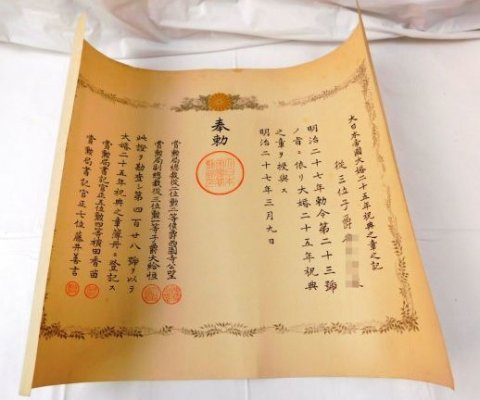 大日本帝國大婚二十五年祝典之章之記
從三位子爵
明治二十七年勅令第二十三號
ノ旨ニ依リ大婚二十五年祝典
之章ヲ授與ス
明治二十七年三月九日
奉勅
賞勳局總裁從二位勳一等侯爵西園寺公望
賞勳局副總裁從三位勳一等子爵大給恒
此證ヲ勘査シ第四百廿八號ヲ以テ
大婚二十五年祝典之章簿冊ニ登記ス
賞勳局書記官正五位勳四等横田香苗
賞勳局書記官正七位藤井善言